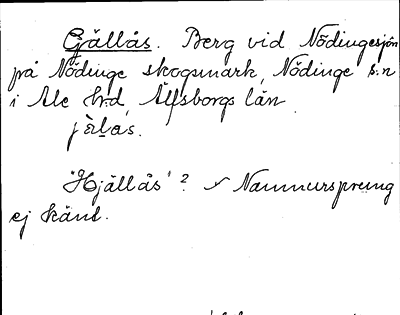 Gjällås. Berg vid Nödingesjön
på Nödinge skogsmark, Nödinge s:n
i Ale h:d, Älfsborgs län.
"Hjällås"? Namnursprung
ej känt.